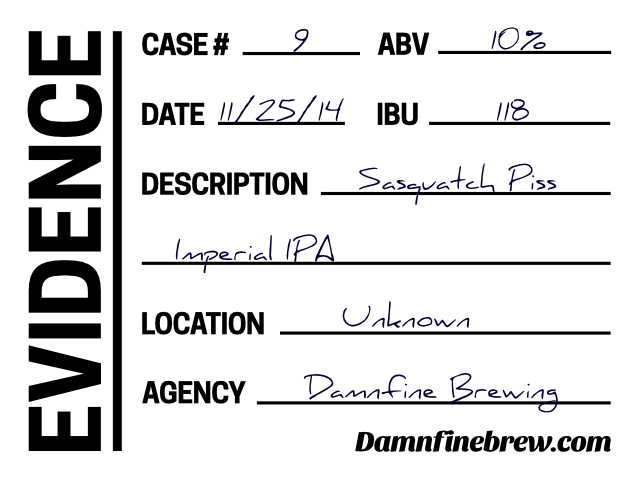 EVIDENCE
CASE # 9 ABV 10%
DATE 11/25/14 IBU 118
DESCRIPTION Sasquatch Piss
Imperial IPA
LOCATION Unknown
AGENCY Damnfine Brewing
Damnfinebrew.com